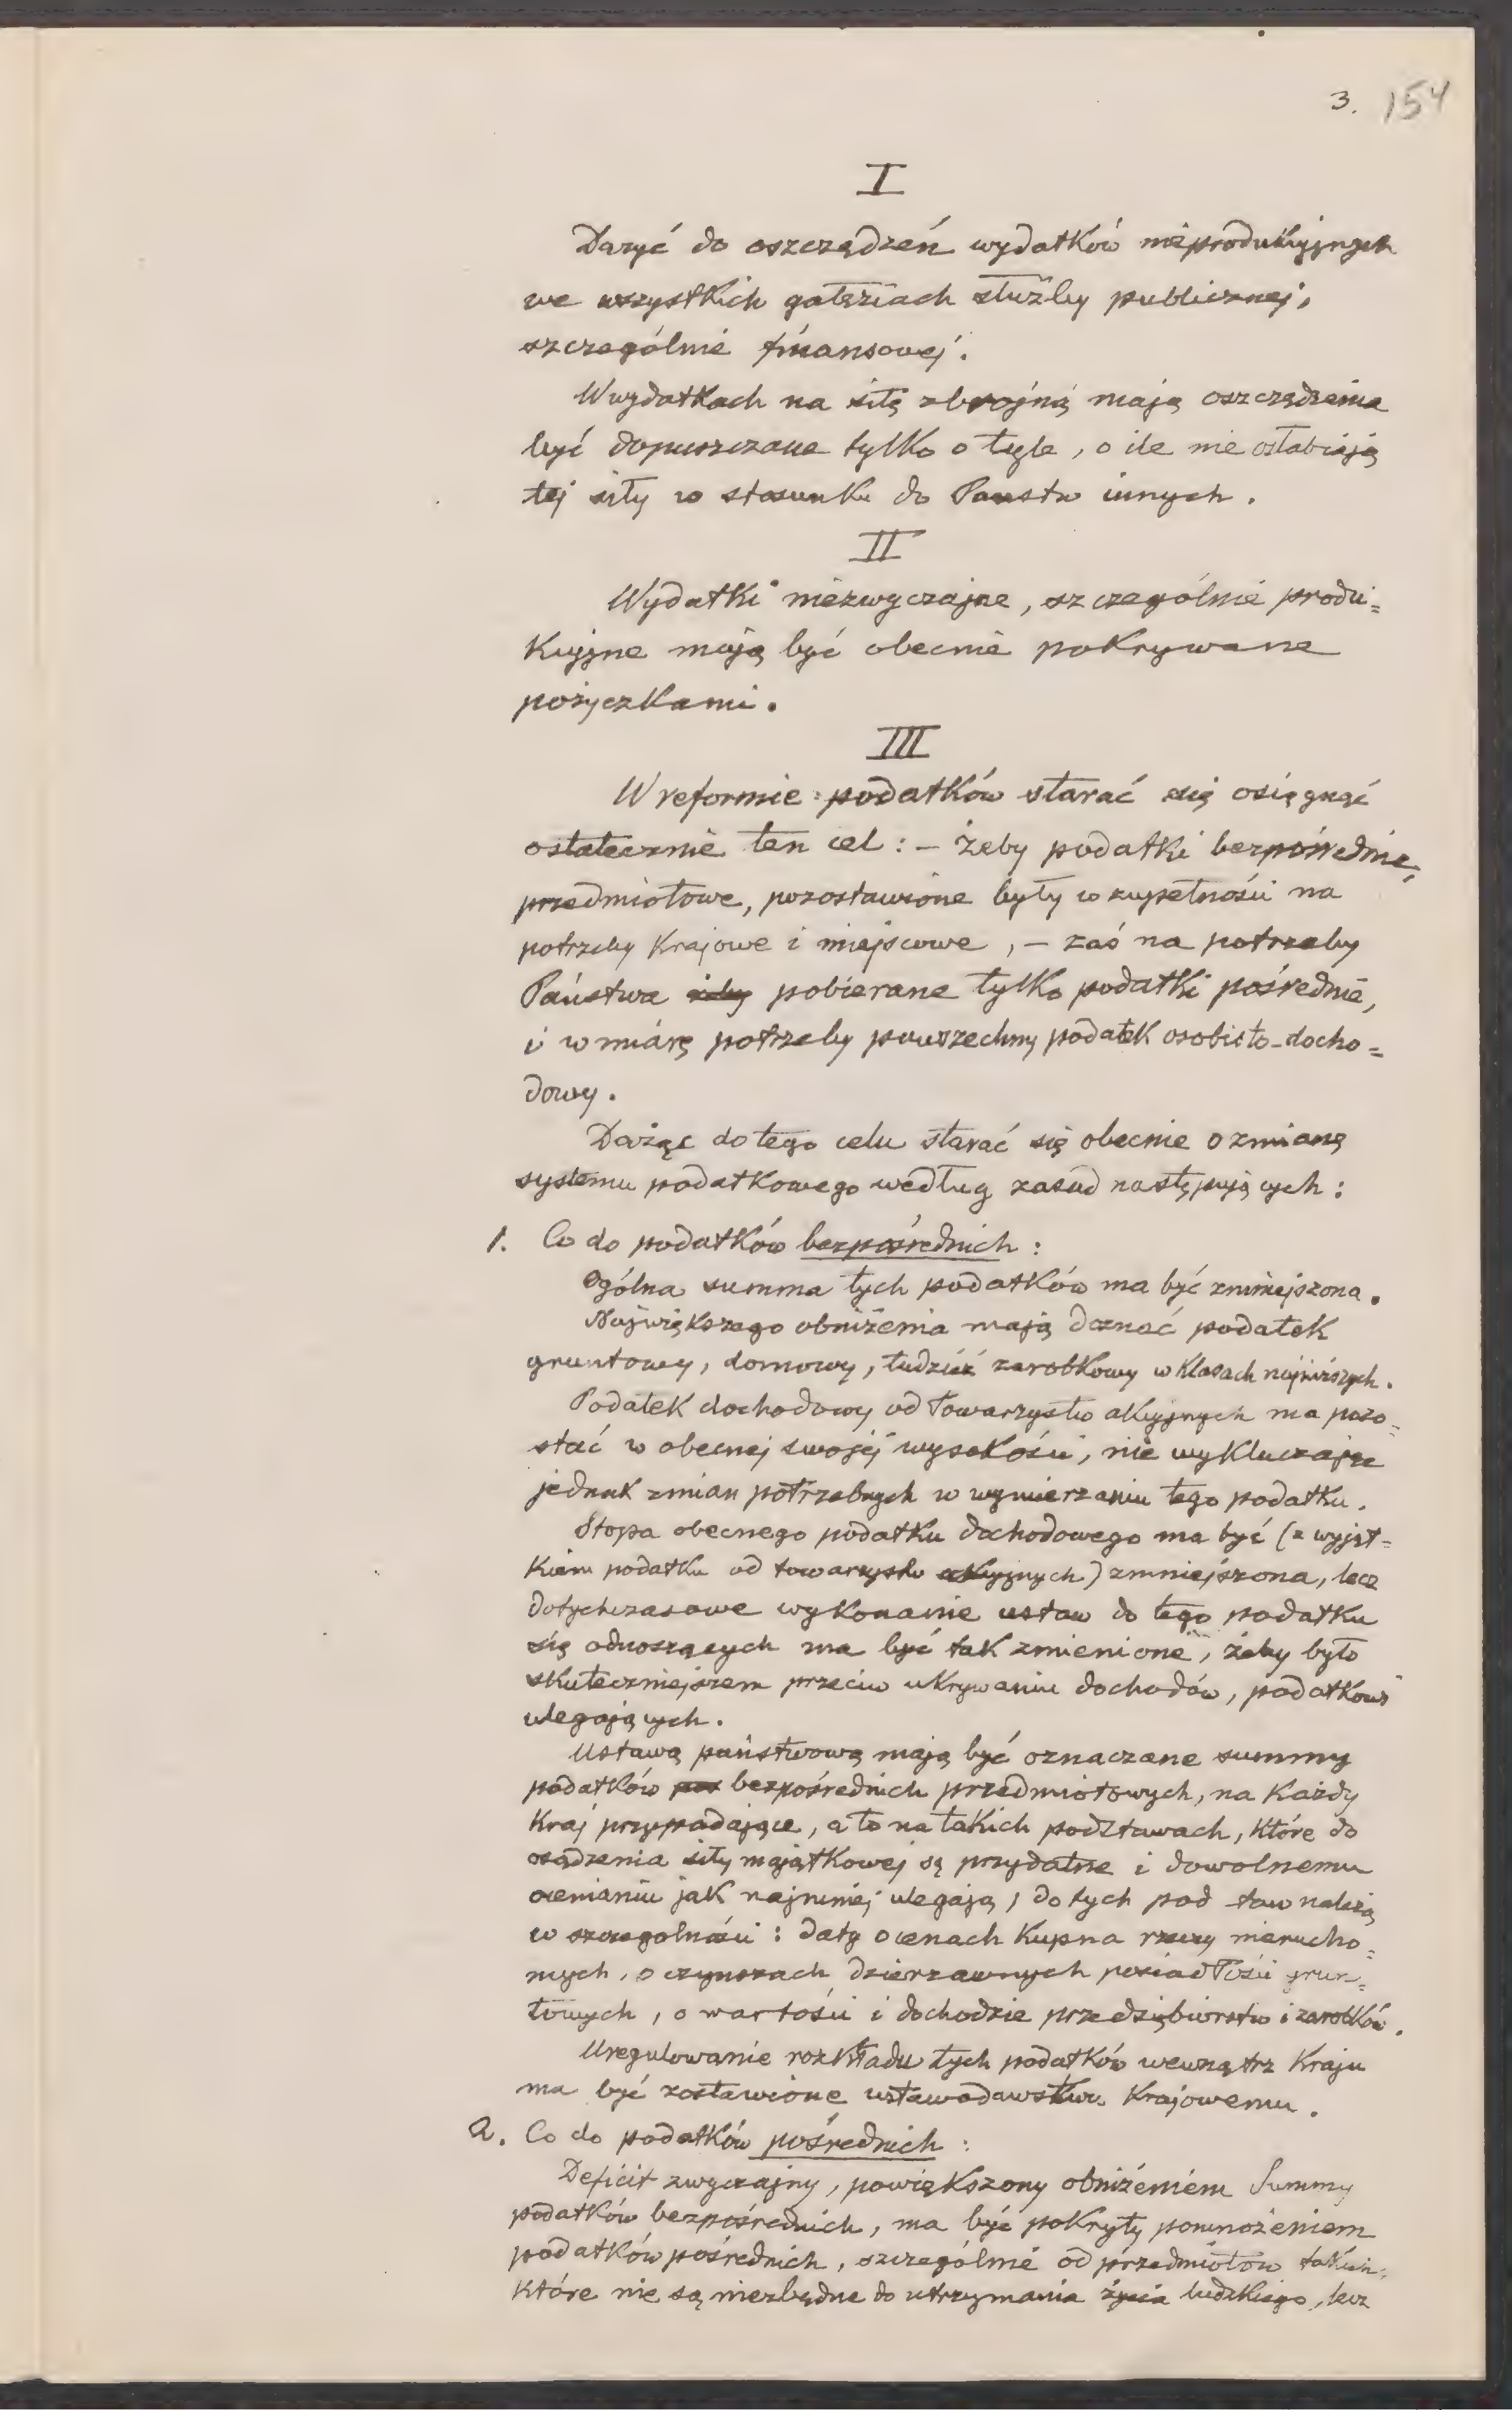 3. 154
I
Dążyć do oszczędzeń wydatków nieprodukcyjnych
we wszystkich gałęziach służby publicznej,
szczególnie finansowej.
W wydatkach na siłę zbrojną mają oszczędzenia
być dopuszczane tylko o tyle, o ile nie osłabiają
tej siły w stosunku do Państw innych.
II
Wydatki niezwyczajne, szczególnie produ=
kcyjne mają być obecnie pokrywane
pożyczkami.
III
W reformie podatków starać się osięgnąć
ostatecznie ten cel: – żeby podatki bezpośrednie,
przedmiotowe, pozostawione były w zupełności na
potrzeby krajowe i miejscowe, – zaś na potrzeby
Państwa żeby pobierane tylko podatki pośrednie,
i w miarę potrzeby powszechny podatek osobisto-docho=
dowy.
Dążąc do tego celu starać się obecnie o zmianę
systemu podatkowego według zasad następujących:
1. Co do podatków bezpośrednich:
Ogólna summa tych podatków ma być zmniejszona.
Największego obniżenia mają doznać podatek
gruntowy, domowy, tudzież zarobkowy w klasach najniższych.
Podatek dochodowy od Towarzystw akcyjnych ma pozo=
stać w obecnej swojej wysokości, nie wykluczając
jednak zmian potrzebnych w wymierzaniu tego podatku.
Stopa obecnego podatku dochodowego ma być (z wyjąt=
kiem podatku od towarzystw akcyjnych) zmniejszona, lecz
dotychczasowe wykonanie ustaw do tego podatku
się odnoszących ma być tak zmienione, żeby było
skuteczniejszem przeciw ukrywaniu dochodów, podatkowi
ulegających.
Ustawą państwową mają być oznaczane summy
podatków pos bezpośrednich przedmiotowych, na każdy
kraj przypadające, a to na takich podstawach, które do
osądzenia siły majątkowej są przydatne i dowolnemu
ocenianiu jak najmniej ulegają; do tych pod taw należą
w szczególności: daty o cenach kupna rzeczy nierucho=
mych, o czynszach dzierzawnych posiadłości grun=
towych, o wartości i dochodzie przedsiębiorstw i zarobków.
Uregulowanie rozkładu tych podatków wewnątrz kraju
ma być zostawione ustawodawstwu krajowemu.
2. Co do podatków pośrednich:
Deficit zwyczajny, powiększony obniżeniem Summy
podatków bezpośrednich, ma być pokryty pomnożeniem
podatków pośrednich, szczególnie od przedmiotów takich,
które nie są niezbędne do utrzymania życia ludzkiego, lecz